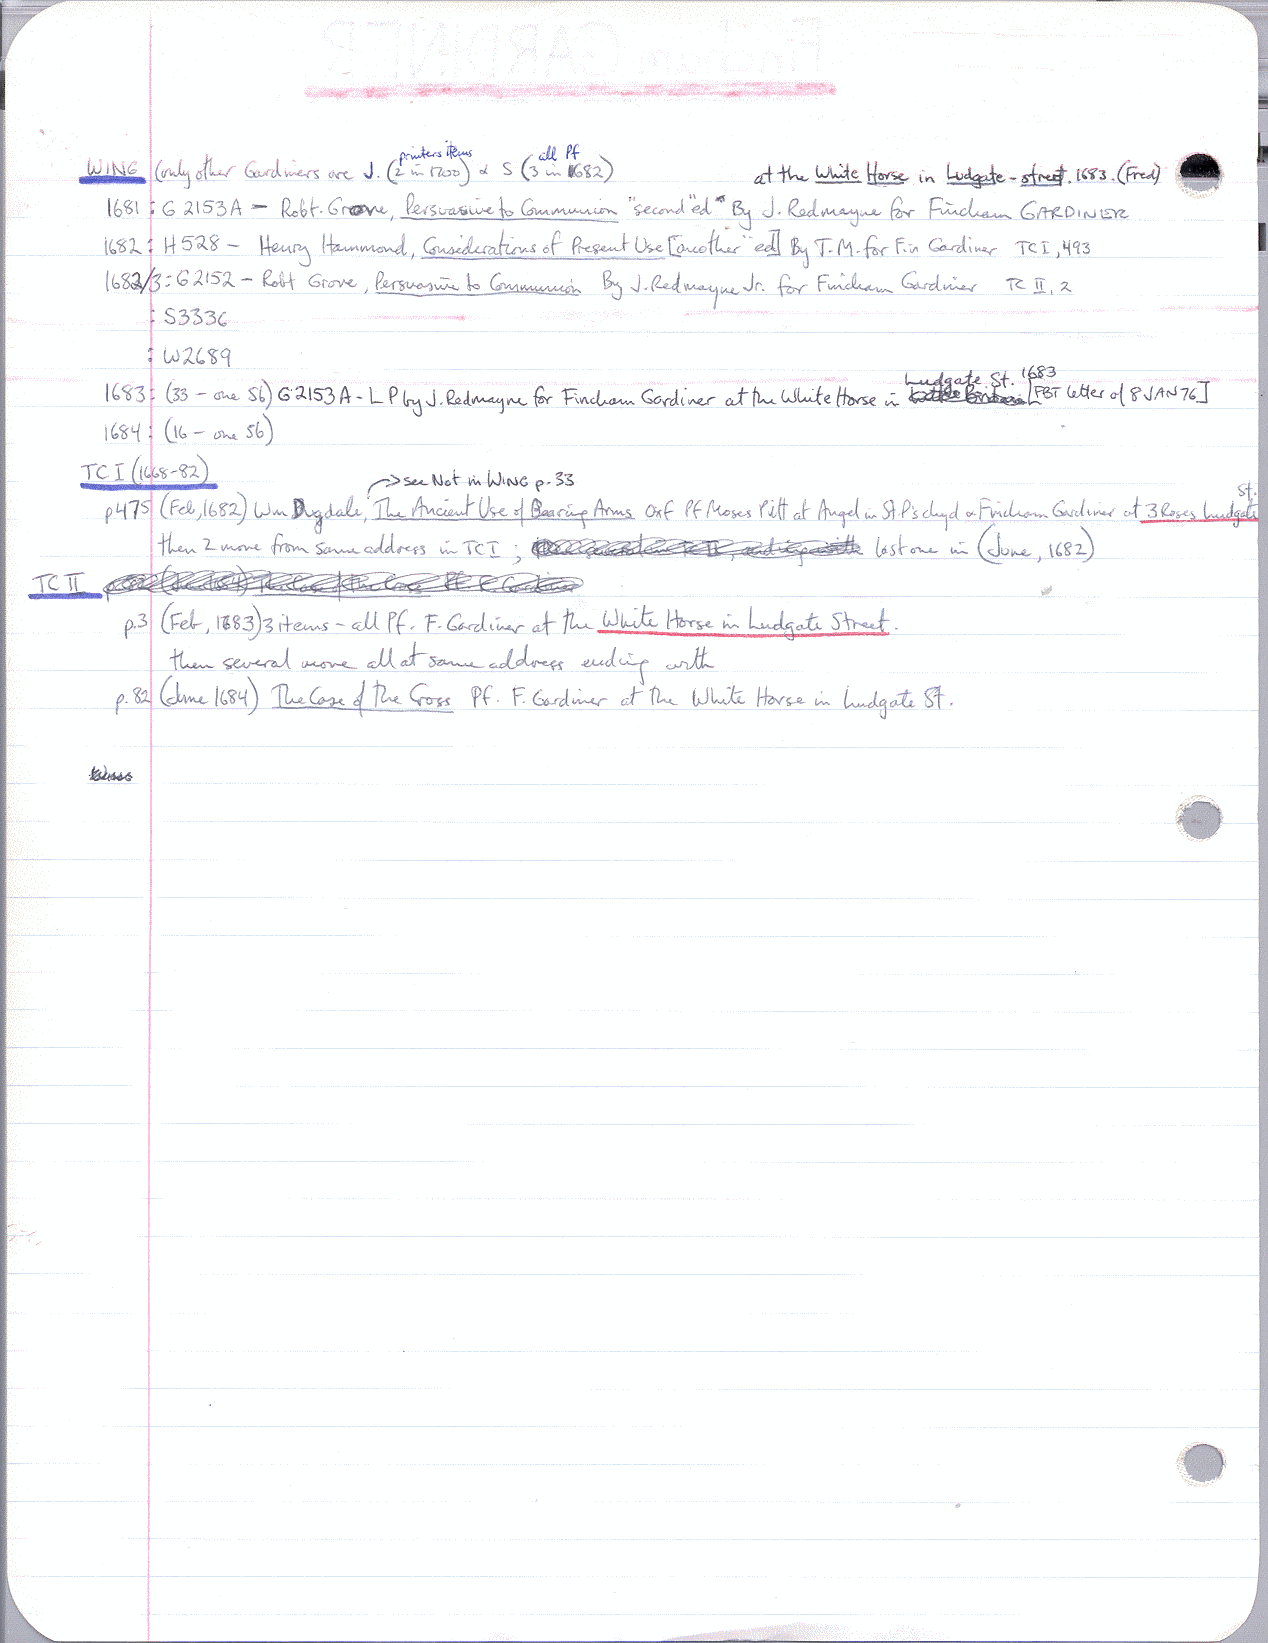 printers items all Pf
WING (only other Gardiners are J. (2 in 1700) & S (3 in 1682) at the White Horse in Ludgate-street. 1683. (Fred)
1681 : G 2153A - Robt. Grove, Persuasive to Communion "second" ed" By J. Redmayne for Fincham GARDINER
1682 : H 528 - Henry Hammond, Considerations of Present Use [another "ed] By T.M. for Fin Gardiner TC I, 493
1682/3 : G 2152 - Robt Grove, Persuasive to Communion By J. Redmayne Jr. for Fincham Gardiner TC II, 2
: S3336
: W2689
Ludgate St. 1683
1683 : (33 - one S6) G 2153A - L P by J. Redmayne for Fincham Gardiner at the White Horse in [FBT letter of 8 JAN 76]
1684 : (16 - one S6)
TC I (1668-82)
see Not in WING p. 33
St.
p475 (Feb, 1682) Wm Dugdale, The Ancient Use of Bearing Arms Oxf Pf Moses Pitt at Angel in St. P's chyd & Fincham Gardiner at 3 Roses Ludgate
then 2 more from same address in TC I ; last one in (June, 1682)
TC II
p.3 (Feb, 1683) 3 items - all Pf. F. Gardiner at the White Horse in Ludgate Street.
then several more all at same address ending with
p. 82 (June 1684) The Case of the Cross Pf. F. Gardiner at the White Horse in Ludgate St.